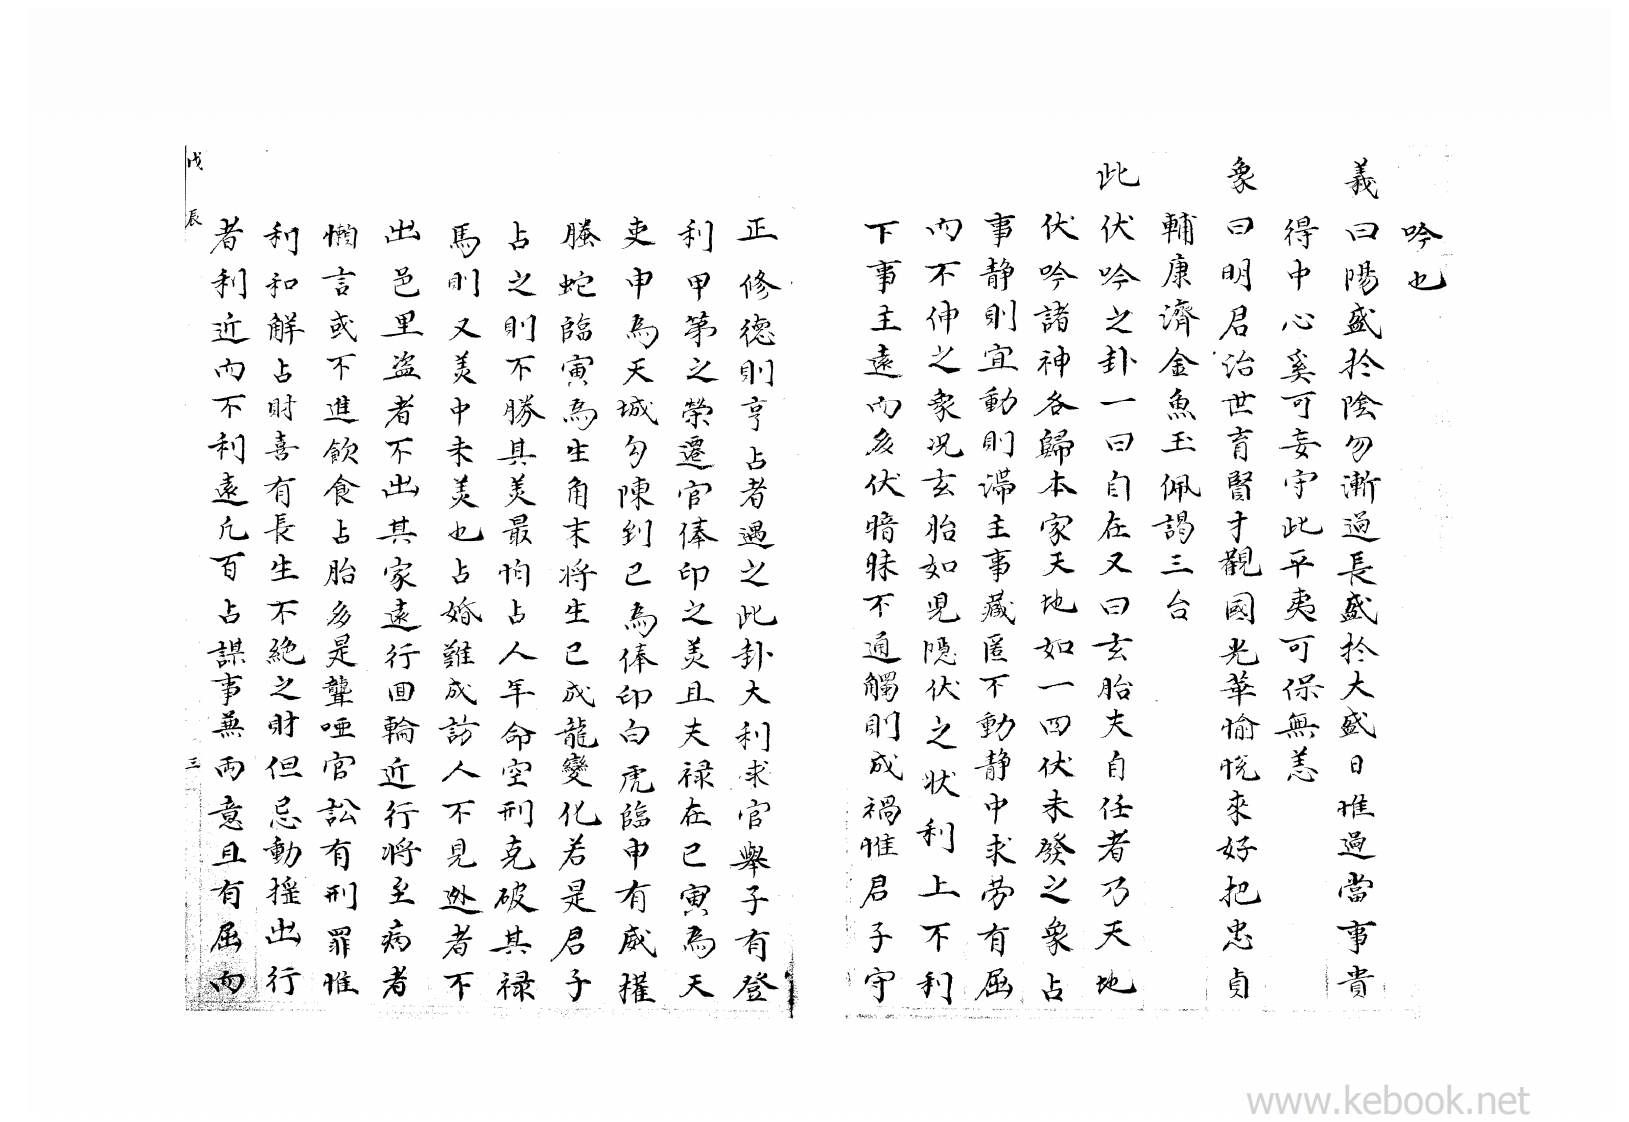 吟也
義曰陽盛於陰勿漸過長盛於大盛日惟過當事貴
得中心奚可妄守此平夷可保無恙
象曰明君治世育賢才觀國光華愉悅來好把忠貞
輔康濟金魚玉佩謁三台
此伏吟之卦一曰自在又曰玄胎夫自任者乃天地
伏吟諸神各歸本家天地如一四伏未發之象占
事静則宜動則滯主事藏匿不動静中求劳有屈
而不伸之象况玄胎如児隱伏之状利上不利
下事主遠而多伏暗昧不通觸則成禍惟君子守
正修德則亨占者遇之此卦大利求官舉子有登
利甲第之榮遷官俸印之美且夫禄在巳寅為天
吏申為天城勾陳到巳為俸印白虎臨申有威權
螣蛇臨寅為生角末将生巳成龍變化若是君子
占之則不勝其美最怕占人年命空刑克破其禄
馬則又美中未美也占婚難成訪人不見逃者不
出邑里盗者不出其家遠行回輪近行将至病者
懶言或不進飲食占胎多是聾啞官訟有刑罪惟
利和解占財喜有長生不絶之財但忌動揺出行
者利近而不利遠凢百占謀事無兩意且有屈而
戊辰 三
www.kebook.net